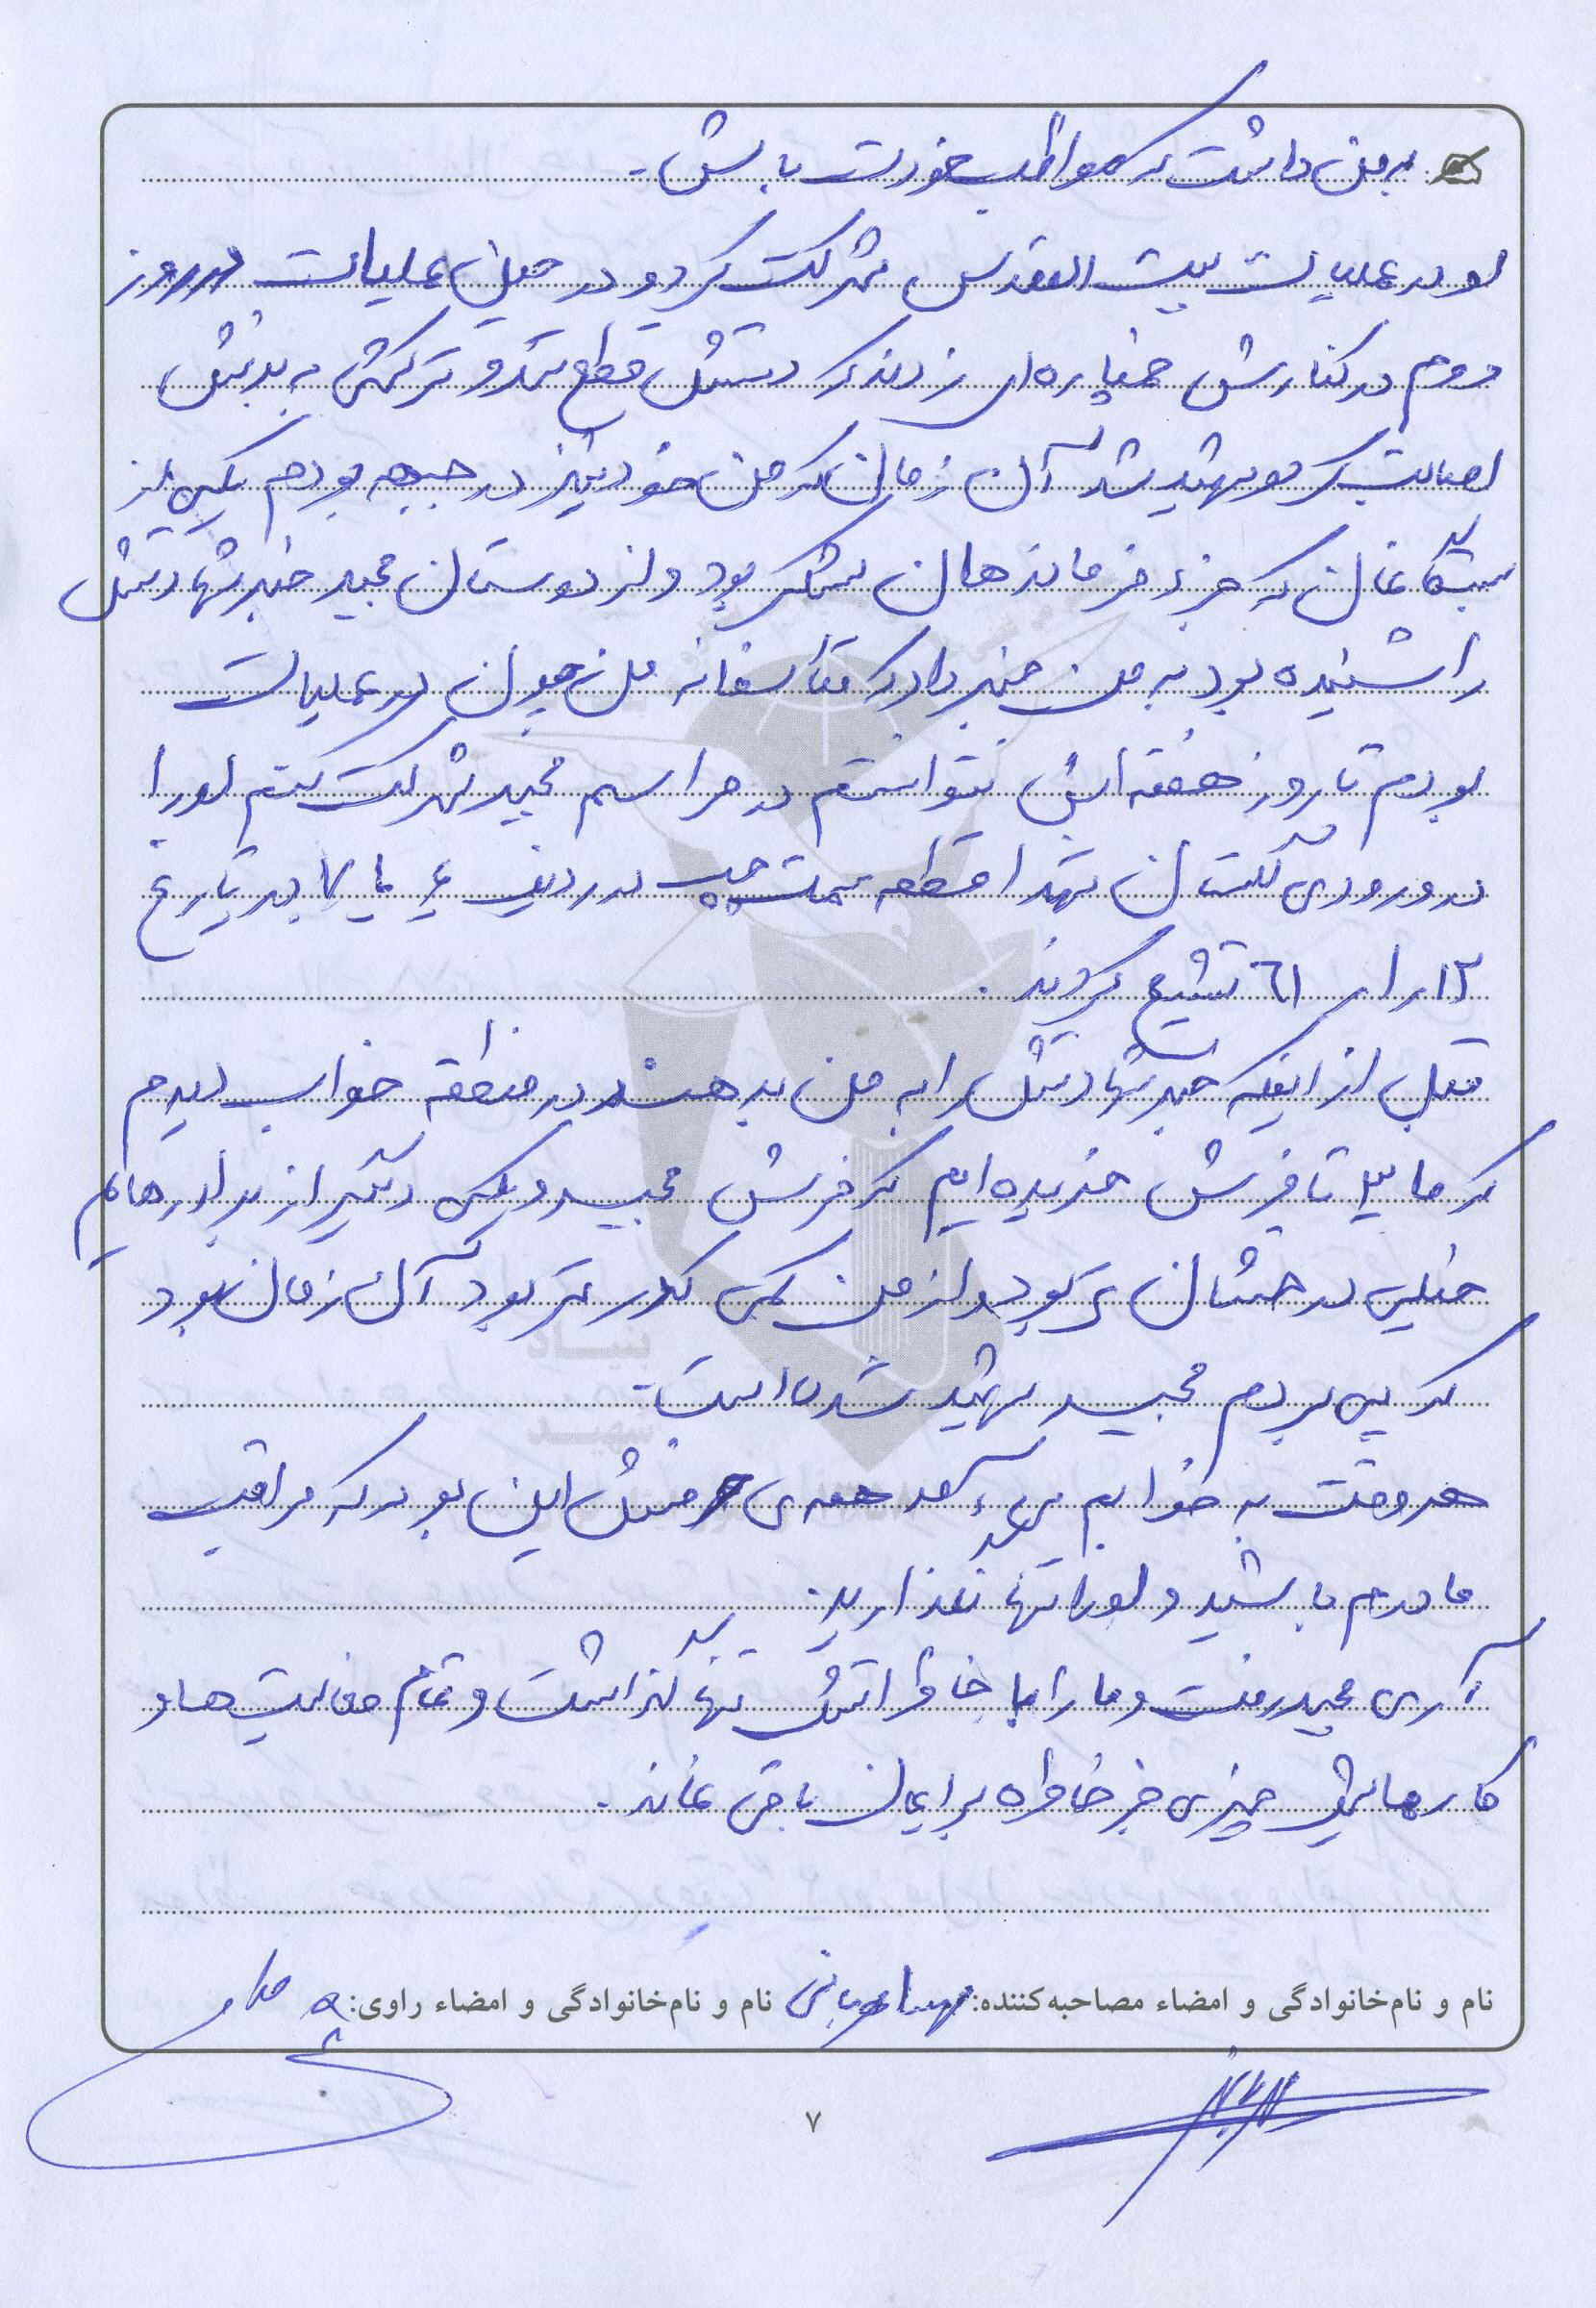 به من داشت که مواظب خودت باش.
او در عملیات بیت المقدس شرکت کرد و در حین عملیات در روز
دوم در کنارش خمپاره ای زدند که دستش قطع شد و ترکش به بدنش
اصابت کرد و شهید شد آن زمان که من خود نیز در جبهه بودم یکی از
که جزء فرماندهان لشکر بود و از دوستان مجید خبر شهادتش
را شنیده بود به من خبر داد که متأسفانه من چون در عملیات
بودم تا روز هفته اش نتوانستم در مراسم مجید شرکت کنم او را
در ورودی گلستان شهدا قطعه سمت چپ در ردیف ۶ یا ۷ در تاریخ
۱۲ ر ۱ ر ۶۱ تشییع کردند.
قبل از اینکه خبر شهادتش را به من بدهند در منطقه خواب دیدم
که ما ۳ تا فرش خریده ایم که فرش مجید و یکی دیگر از برادرهایم
خیلی درخشان تر بود و از من کمی کدر تر بود آن زمان بود
که پی بردم مجید شهید شده است.
هر وقت به خوابم می آمد همه ی حرفش این بود که مراقب
مادرم باشید و او را تنها نگذارید.
آری مجید رفت و ما را با خاطراتش تنها گذاشت و تمام فعالیت ها و
کارهایش چیزی جز خاطره برایمان باقی نماند.
نام و نام‌خانوادگی و امضاء مصاحبه‌کننده: نام و نام‌خانوادگی و امضاء راوی:
۷
بنیاد
شهید